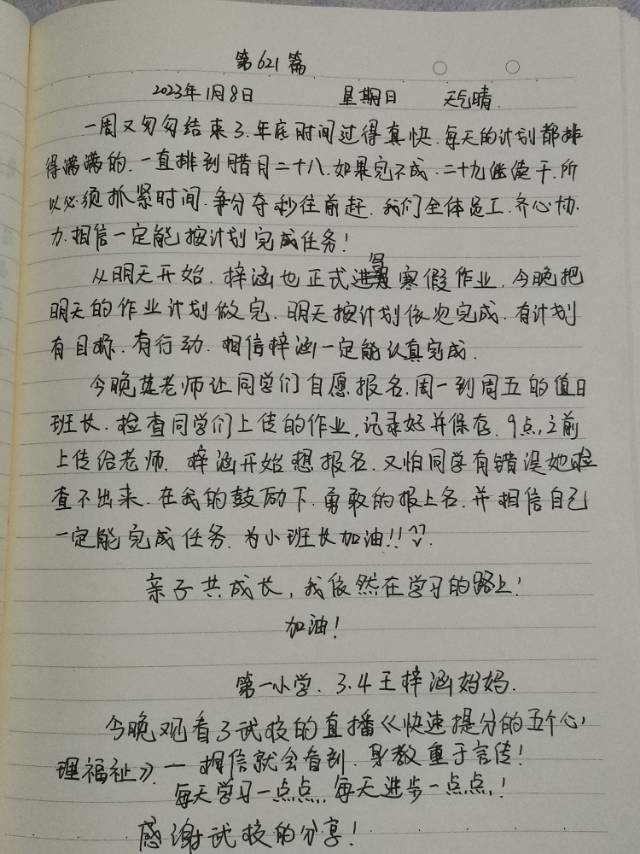 第621篇
2023年1月8日 星期日 天气晴.
一周又匆匆结束了.年底时间过得真快.每天的计划都排
得满满的.一直排到腊月二十八.如果完不成.二十九继续干.所
以必须抓紧时间.争分夺秒往前赶.我们全体员工.齐心协
力.相信一定能按计划完成任务!
从明天开始.梓涵也正式进写寒假作业.今晚把
明天的作业计划做完.明天按计划依次完成.有计划
有目标.有行动.相信梓涵一定能认真完成.
今晚楚老师让同学们自愿报名.周一到周五的值日
班长.检查同学们上传的作业,记录好并保存.9点之前
上传给老师.梓涵开始想报名.又怕同学有错误她检
查不出来.在我的鼓励下.勇敢的报上名.并相信自己
一定能完成任务.为小班长加油!!
亲子共成长,我依然在学习的路上!
加油!
第一小学.3.4王梓涵妈妈.
今晚观看了武校的直播《快速提分的五个心
理福祉》.一相信就会看到.身教重于言传!
每天学习一点点,每天进步一点点!
感谢武校的分享!